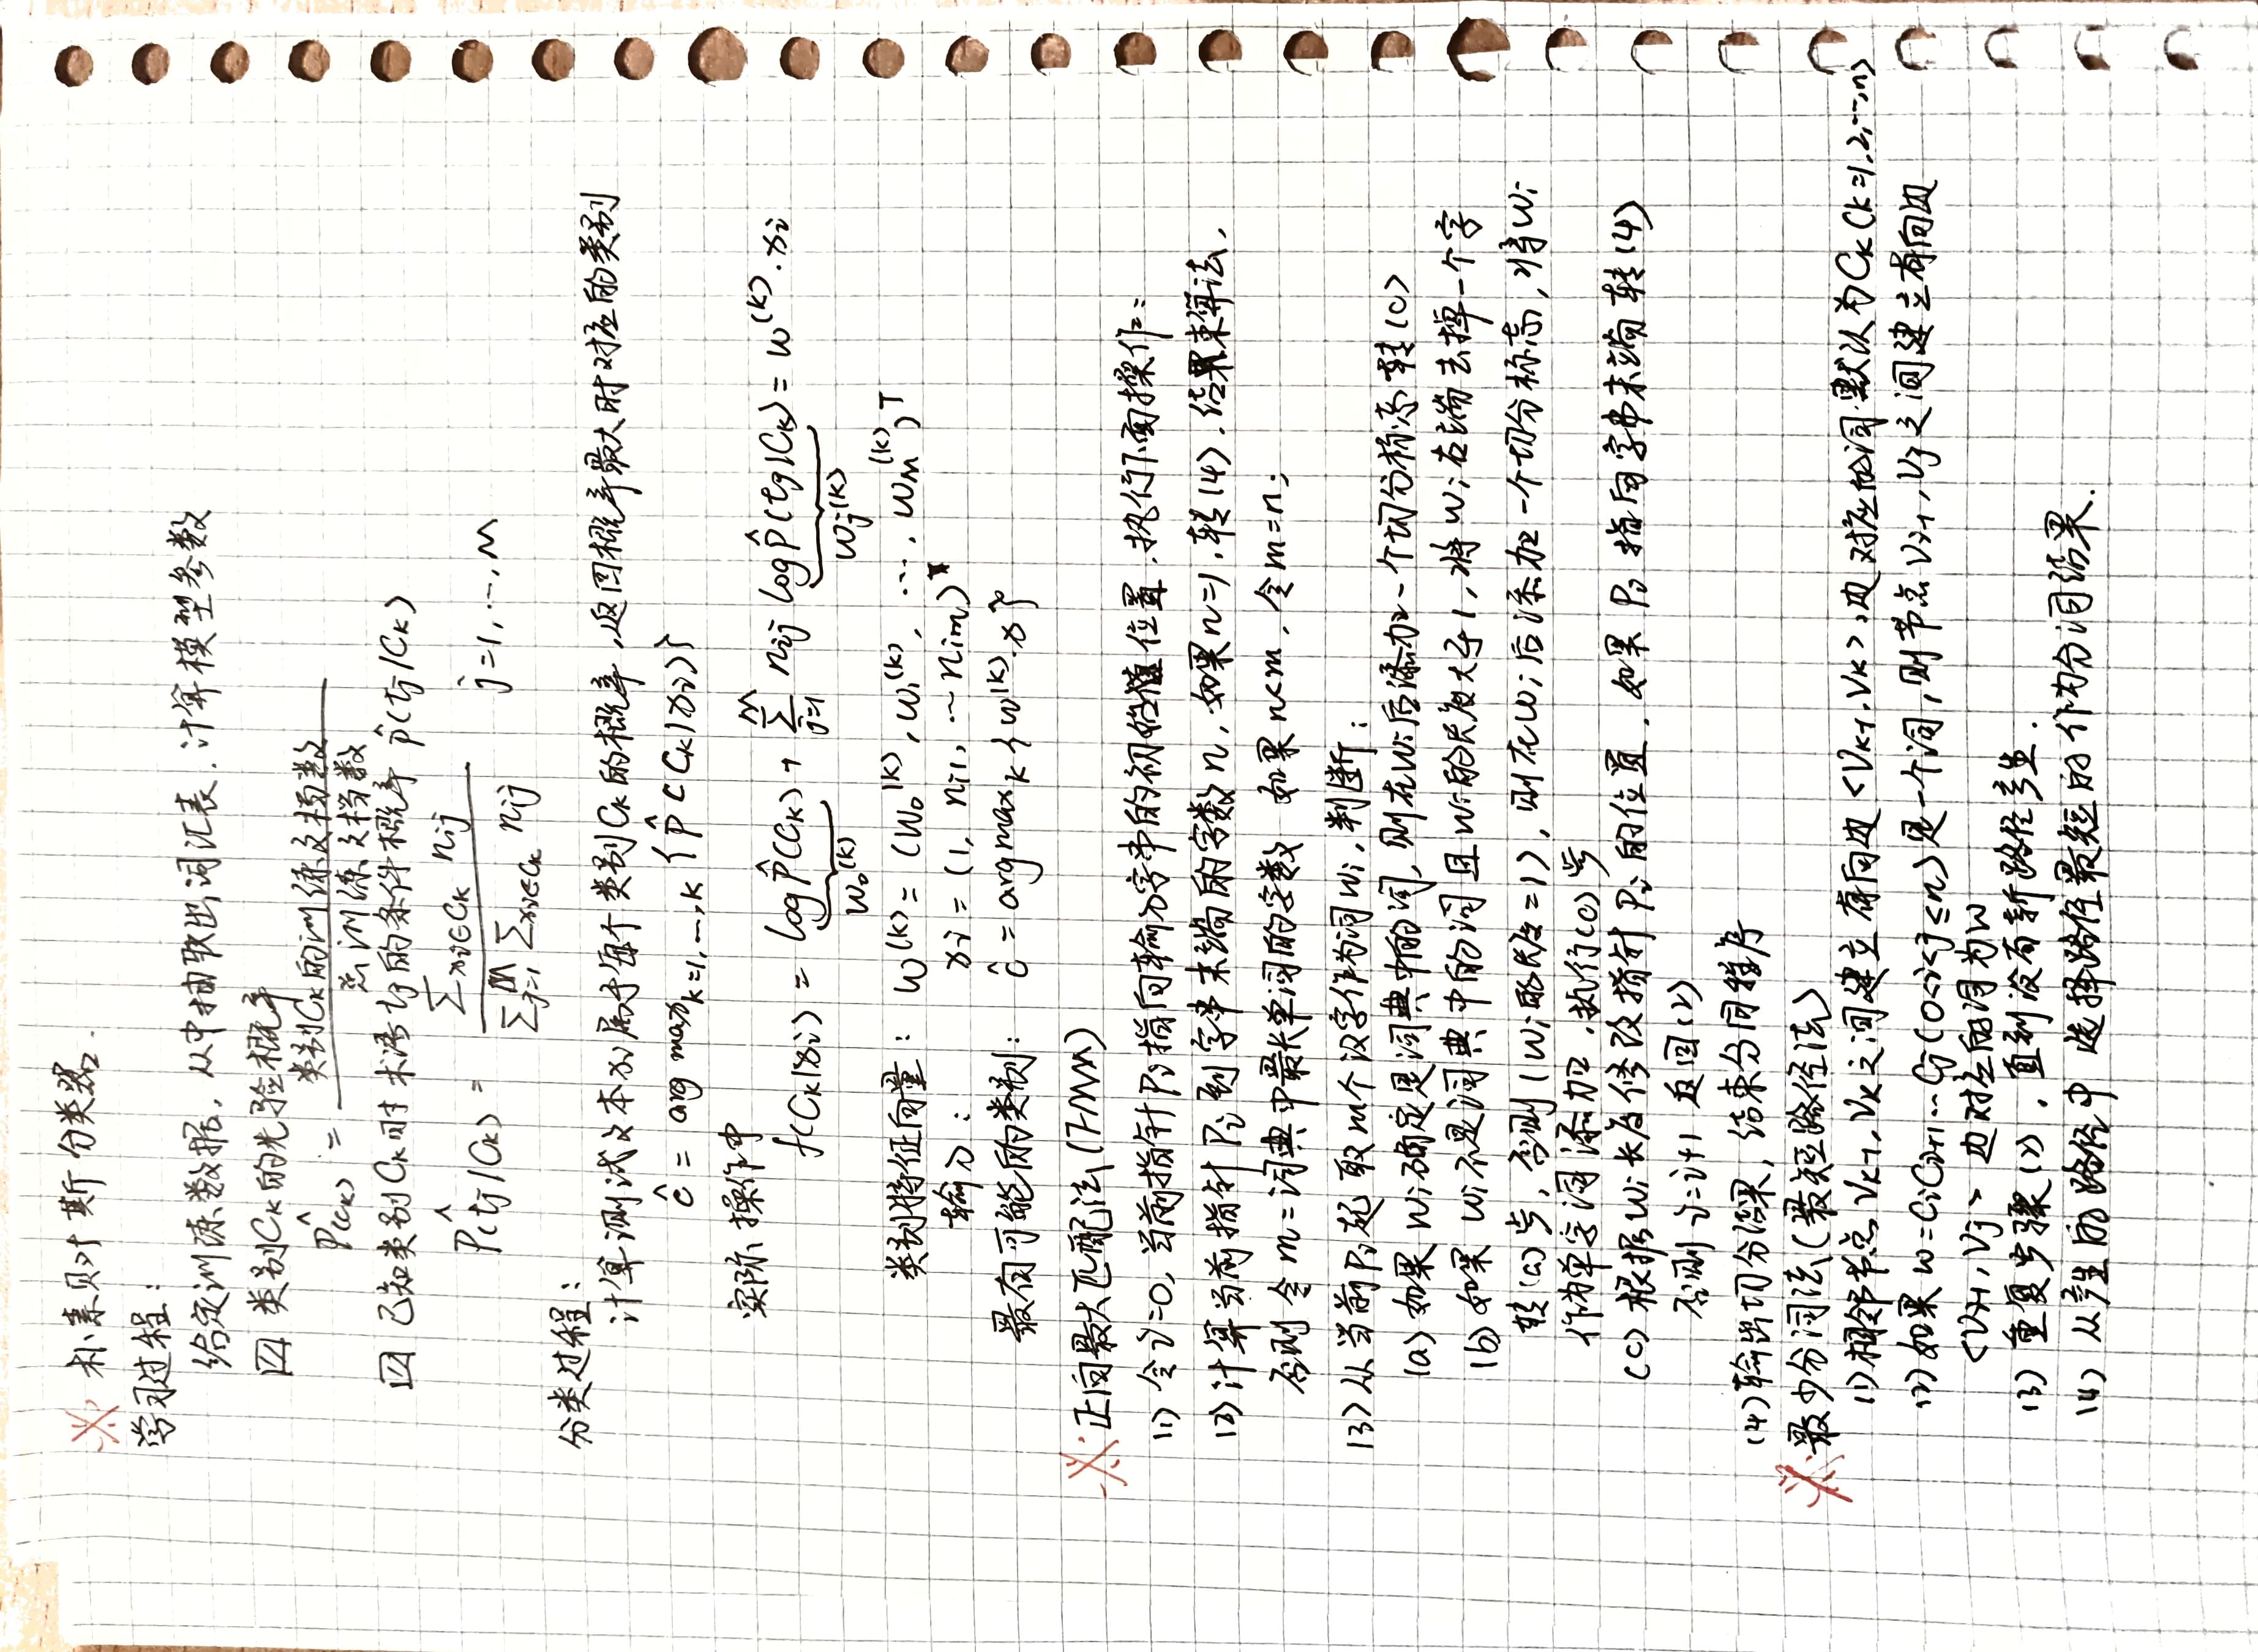 ※ 朴素贝叶斯分类器.
学习过程:
给定训练数据, 从中抽取出词汇表, 计算模型参数
☑ 类别Ck的先验概率
P̂(ck) = 类别Ck的训练文档数 / 总训练文档数
☑ 已知类别Ck时术语tj的条件概率 P̂(tj|Ck)
P̂(tj|Ck) = ∑xi∈Ck nij / ∑j=1^M ∑xi∈Ck nij   j=1,…,M
分类过程:
计算测试文本xi属于每个类别Ck的概率, 返回概率最大时对应的类别
ĉ = arg max k=1,…,K {P̂(Ck|xi)}
实际操作中
f(Ck|xi) = log P̂(Ck) + ∑j=1^M nij log P̂(tj|Ck) = w^(k)·xi
w0^(k) wj^(k)
类别特征向量: w^(k) = (w0^(k), w1^(k), …, wM^(k))^T
输入: xi = (1, ni1, … nim)
最有可能的类别: ĉ = argmaxk {w^(k)·x}
※ 正向最大匹配法(FMM)
(1) 令i=0, 当前指针Pi指向输入字串的初始位置, 执行下面操作:
(2) 计算当前指针Pi到字串末端的字数n, 如果n=1, 转(4), 结束算法,
否则令m=词典中最长单词的字数 如果n<m, 令m=n;
(3) 从当前Pi起取m个汉字作为词wi, 判断:
(a) 如果wi确定是词典中的词, 则在wi后添加一个切分标志转(c)
(b) 如果wi不是词典中的词且wi的长度大于1, 将wi右端去掉一个字
转(a)步, 否则(wi的长度=1), 则在wi后添加一个切分标志, 将wi
作为单字词添加, 执行(c)步
(c) 根据wi长度修改指针Pi的位置, 如果Pi指向字串末端转(4)
否则i=i+1 返回(2)
(4) 输出切分结果, 结束分词程序
※ 最少分词法(最短路径法)
(1) 相邻节点Vk-1, Vk之间建立有向边<Vk-1, Vk>, 边对应的词默认为Ck(k=1,2,…,n)
(2) 如果w=CiCi+1…Cj(0<i<j≤n)是一个词, 则节点Vi-1, Vj之间建立有向边
<Vi-1, Vj> 边对应的词为w
(3) 重复步骤(2), 直到没有新路径产生.
(4) 从产生的路径中选择路径最短的作为分词结果.